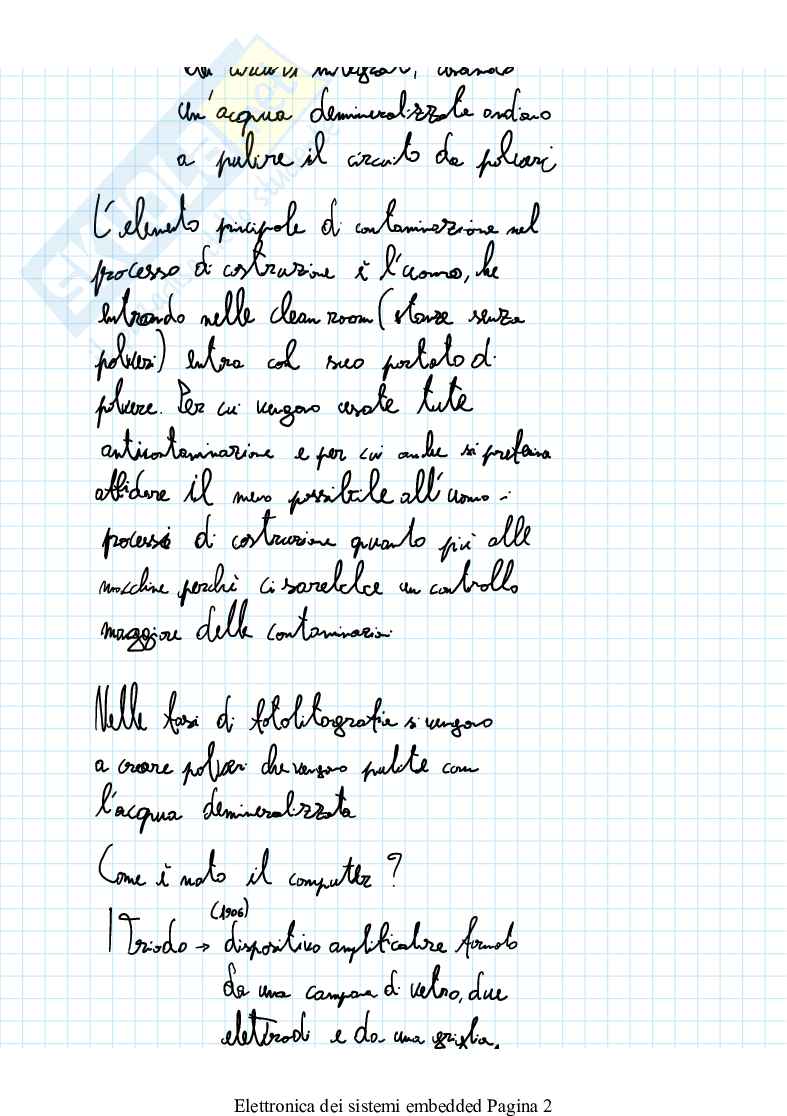 integrati, usando
un'acqua demineralizzata andiamo
a pulire il circuito da polveri
L'elemento principale di contaminazione nel
processo di costruzione è l'uomo, he
entrando nelle clean room (stanze senza
polveri) entra col suo portato di
polvere. Per cui vengono usate tute
anticontaminazione e per cui anche si preferisce
affidare il meno possibile all'uomo i
processi di costruzione quanto più alle
macchine perchè ci sarebbe un controllo
maggiore delle contaminazioni
Nelle fasi di fotolitografie si vengono
a creare polveri che vengono pulite con
l'acqua demineralizzata
Come è nato il computer?
(1906)
Triodo → dispositivo amplificatore formato
da una campana di vetro, due
elettrodi e da una griglia.
Elettronica dei sistemi embedded Pagina 2